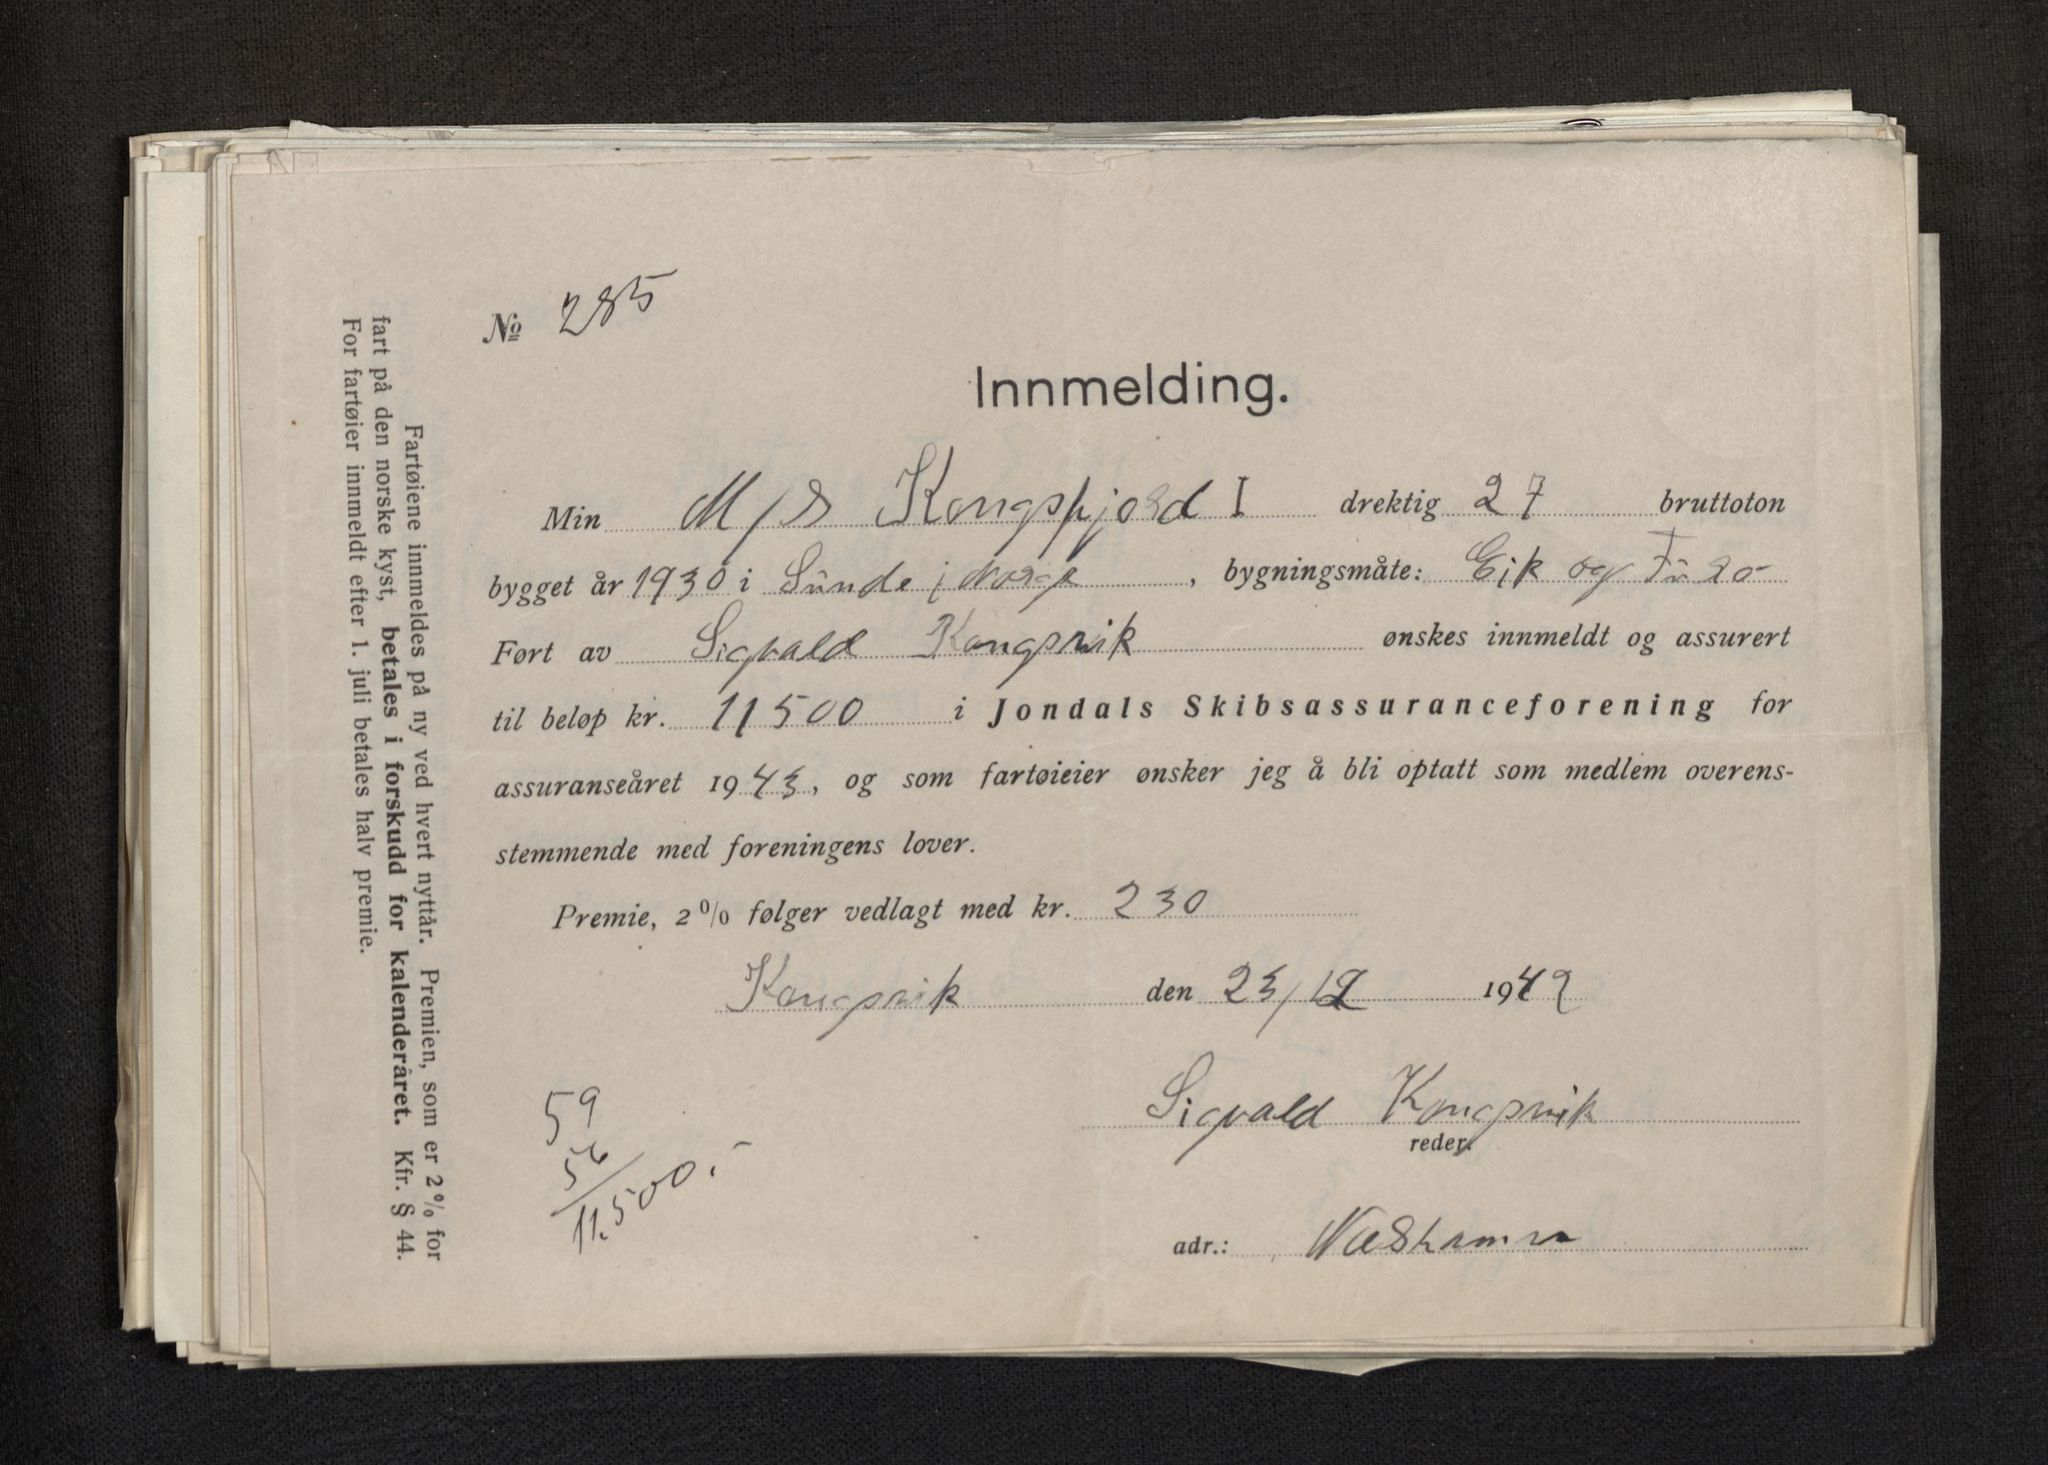 № 285
Innmelding.
Min M/S Kongsfjord I drektig 27 bruttoton
bygget år 1930 i Sunde i Norge, bygningsmåte: Eik og Furo
Ført av Sigvald Kongsvik ønskes innmeldt og assurert
til beløp kr. 11500 i Jondals Skibsassuranceforening for
assuranseåret 1943, og som fartøieier ønsker jeg å bli optatt som medlem overens-
stemmende med foreningens lover.
Premie, 2% følger vedlagt med kr. 230
Kongsvik den 23/12 1942
Sigvald Kongsvik
reder.
adr.: Næshamn
59
11.500.-
Fartøiene innmeldes på ny ved hvert nyttår. Premien, som er 2% for
fart på den norske kyst, betales i forskudd for kalenderåret. Kfr. § 44.
For fartøier innmeldt efter 1. juli betales halv premie.